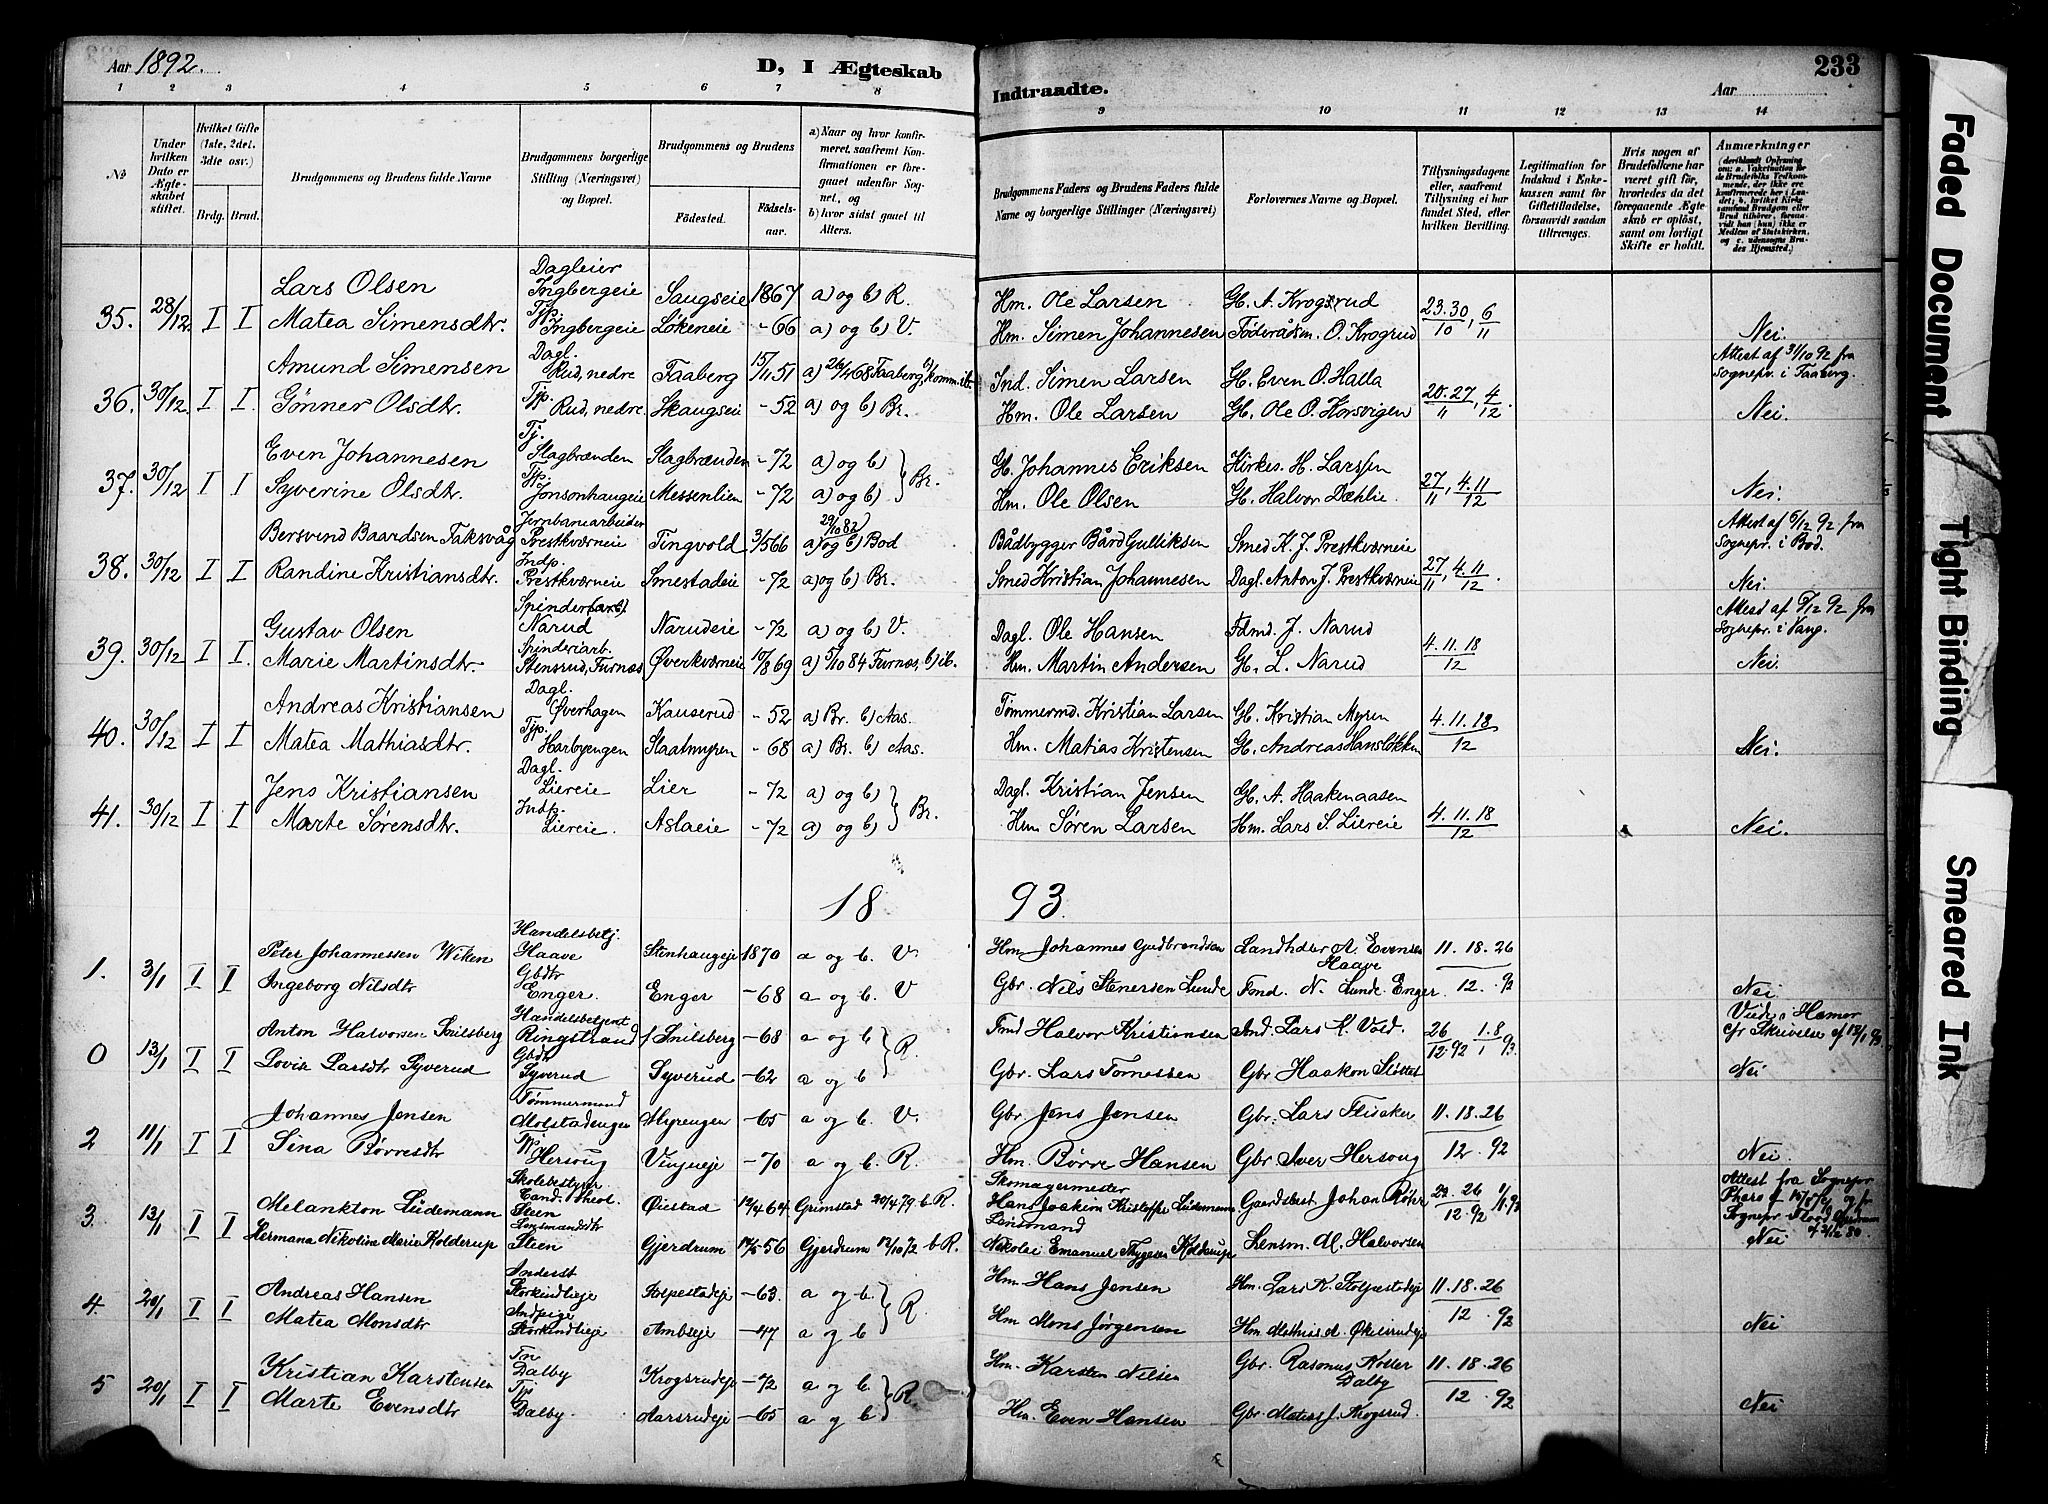 Aar 1892. D, I Ægteskab Indtraadte. Aar 233
1 2 3 4 5 6 7 8 9 10 11 12 13 14
No
Under hvilken Dato er Ægteskabet stiftet.
Hvilket Gifte (1ste, 2det, 3die osv.)
Brdg. Brud.
Brudgommens og Brudens fulde Navne
Brudgommens borgerlige Stilling (Næringsvei) og Bopæl.
Brudgommens og Brudens
Fødested. Fødselsaar.
a) Naar og hvor konfirmeret, saafremt Konfirmationen er foregaaet udenfor Sognet, og
b) hvor sidst gaaet til Alters.
Brudgommens Faders og Brudens Faders fulde Navne og borgerlige Stillinger (Næringsvei)
Forlovernes Navne og Bopæl.
Tillysningsdagene eller, saafremt Tillysning ei har fundet Sted, efter hvilken Bevilling.
Legitimation for Indskud i Enkekassen samt for Giftetilladelse, forsaavidt saadan tiltrænges.
Hvis nogen af Brudefolkene har været gift før, hvorledes da det foregaaende Ægteskab er opløst, samt om lovligt Skifte er holdt.
Anmærkninger
35. 28/12 I I Lars Olsen Dagleier Ingbergeie Saugseie 1867 a) og b) R. Hm. Ole Larsen Gb. A. Krogsrud 23.30/10, 6/11
Matea Simensdtr. Tjp. Ingbergeie Løkeneie -66 a) og b) V. Hm. Simen Johannesen Føderådsm. O. Krogrud Nei.
36. 30/12 I I. Amund Simensen Dagl. Rud, nedre Faaberg 15/11 51 a) 26/4 68 Faaberg b) komm. ib. Ind. Simen Larsen Gb. Even O. Halla 20.27/11, 4/12. Attest af 31/10 92 fra Sognepr. i Faaberg.
Gønner Olsdtr. Tjp. Rud, nedre Skaugseie -52 a) og b) Br. Hm. Ole Larsen Gb. Ole O. Korsvigen Nei.
37. 30/12 I I Even Johannesen Tj. Slagbrænden Slagbrænden -72 a) og b) Gb. Johannes Eriksen Kirkes. H. Larssen 27/11, 4.11/12
Syverine Olsdtr. Tjp. Jonsonhaugeie Messenlien -72 a) og b) Br. Hm. Ole Olsen Gb. Halvor Dæhlie. Nei.
38. 30/12 I I Bersvend Baardsen Taksvåg Jernbanearbeider Prestkværneie Tingvold 3/5 66 29/10 82) a) og b) Bod Bådbygger Bård Gulliksen Smed K. J. Prestkværneie 27/11, 4.11/12 Attest af 6/12 92 fra Sognepr. i Bod.
Randine Kristiansdtr. Indp. Prestkværneie Smestadeie -72 a) og b) Br. Smed Kristian Johannesen Dagl. Anton J. Prestkværneie Nei.
39. 30/12 I I. Gustav Olsen Spinder(arb.) Narud Narudeie -72 a) og b) V. Dagl. Ole Hansen Fdmd. J. Narud 4.11.18/12 Attest af 6/12 92 fra Sognepr. i Vang.
Marie Martinsdtr. Spinderiarb. Stensrud, Furnæs Øverkværneie 10/8 69 a) 5/10 84 Furnæs, b) ib. Hm. Martin Andersen Gb. L. Narud Nei.
40. 30/12 I I Andreas Kristiansen Dagl. Øverhagen Kauserud -52 a) Br. b) Aas. Tømmermd. Kristian Larsen Gb. Kristian Myren 4.11.18/12
Matea Mathiasdtr. Tjp. Harbyengen Slaatmyren -68 a) Br. b) Aas. Hm. Matias Kristensen Gb. Andreas Hansløkken Nei.
41. 30/12 I I Jens Kristiansen Dagl. Liereie Lier -72 a) og b) Dagl. Kristian Jensen Gb. A. Haakenaasen 4.11.18/12
Marte Sørensdtr. Indp. Liereie. Aslaeie -72 a) og b) Br. Hm Søren Larsen Hm. Lars S. Liereie Nei.
18 93.
1. 3/1 I I Peter Johannessen Wiken Handelsbetj. Haave Stenhaugeje 1870 a og b. V. Hm Johannes Gudbrandsen Landhdler A. Evensen Haave 11.18.26/12. 93
Ingeborg Nilsdtr Gbdtr Enger. Enger -68 a og b. V Gbr. Nils Stenersen Lunde Fmd. N. Lunde Enger. Nei
0 13/1 I I Anton Halvorsen Snilsberg Handelsbetjent Ringstrand Snilsberg -68 a og b Fmd Halvor Kristiansen Ind. Lars K. Vold. 26/12.92 1.8/1 93. Viede i Hamar cfr Skrivelse af 13/1 93
Lovise Larsdtr Syverud Gbdtr Syverud Syverud -62 a og b R. Gbr. Lars Tomessen Gbr Haakon Slettet Nei
2 11/1 I I Johannes Jensen Tømmermand Molstadengen Myrengen -65 a og b. V. Gbr Jens Jensen Gbr. Lars Flisaker 11.18.26/12. 92
Sina Børresdtr Tjp Hersoug Vingneje -70 a og b. R. Hm. Børre Hansen Gbr Iver Hersoug Nei.
3. 13/1 I I Melankton Lüdemann Skolebestyrer Cand. theol. Steen Øiestad 12/4 64 Grimstad 20/4 79 b. R. Skomagermester Hans Joakim Kristoffer Lüdemann Gaardsbest Johan Röhr 26/12.92 1/1 93 Attest fra Sognepr
Hermana Nikoline Marie Kolderup Lensmandsdtr Steen Gjerdrum 14/5 56 Gjerdrum 13/10 72 b. R. Lensmand Nikolai Emanuel Thygesen Kolderup Lensm. M. Halvorsen Nei
4. 20/1 I I Andreas Hansen Inderst Storkindlieje Stolpestadeje -63. a og b. Hm. Hans Jensen Hm. Lars K. Stolpestadeje 11.18.26/12. 92
Matea Monsdtr Indpige Storkindlieje Ambseje -47 a og b R. Hm Mons Jørgensen Hm Mathias M. Økelsrudeje Nei
5 20/1 I I Kristian Karstensen Tn Dalby Krogsrudeje -72 a og b. Hm. Karsten Nilsen Gbr. Rasmus Koller Dalby 11.18.26/12. 92
Marte Evensdtr Tjp Dalby. Aarsrudeje -65 a og b R. Hm. Even Hansen Gbr. Matias J. Krogsrud. Nei
Faded Document
Tight Binding
Smeared Ink